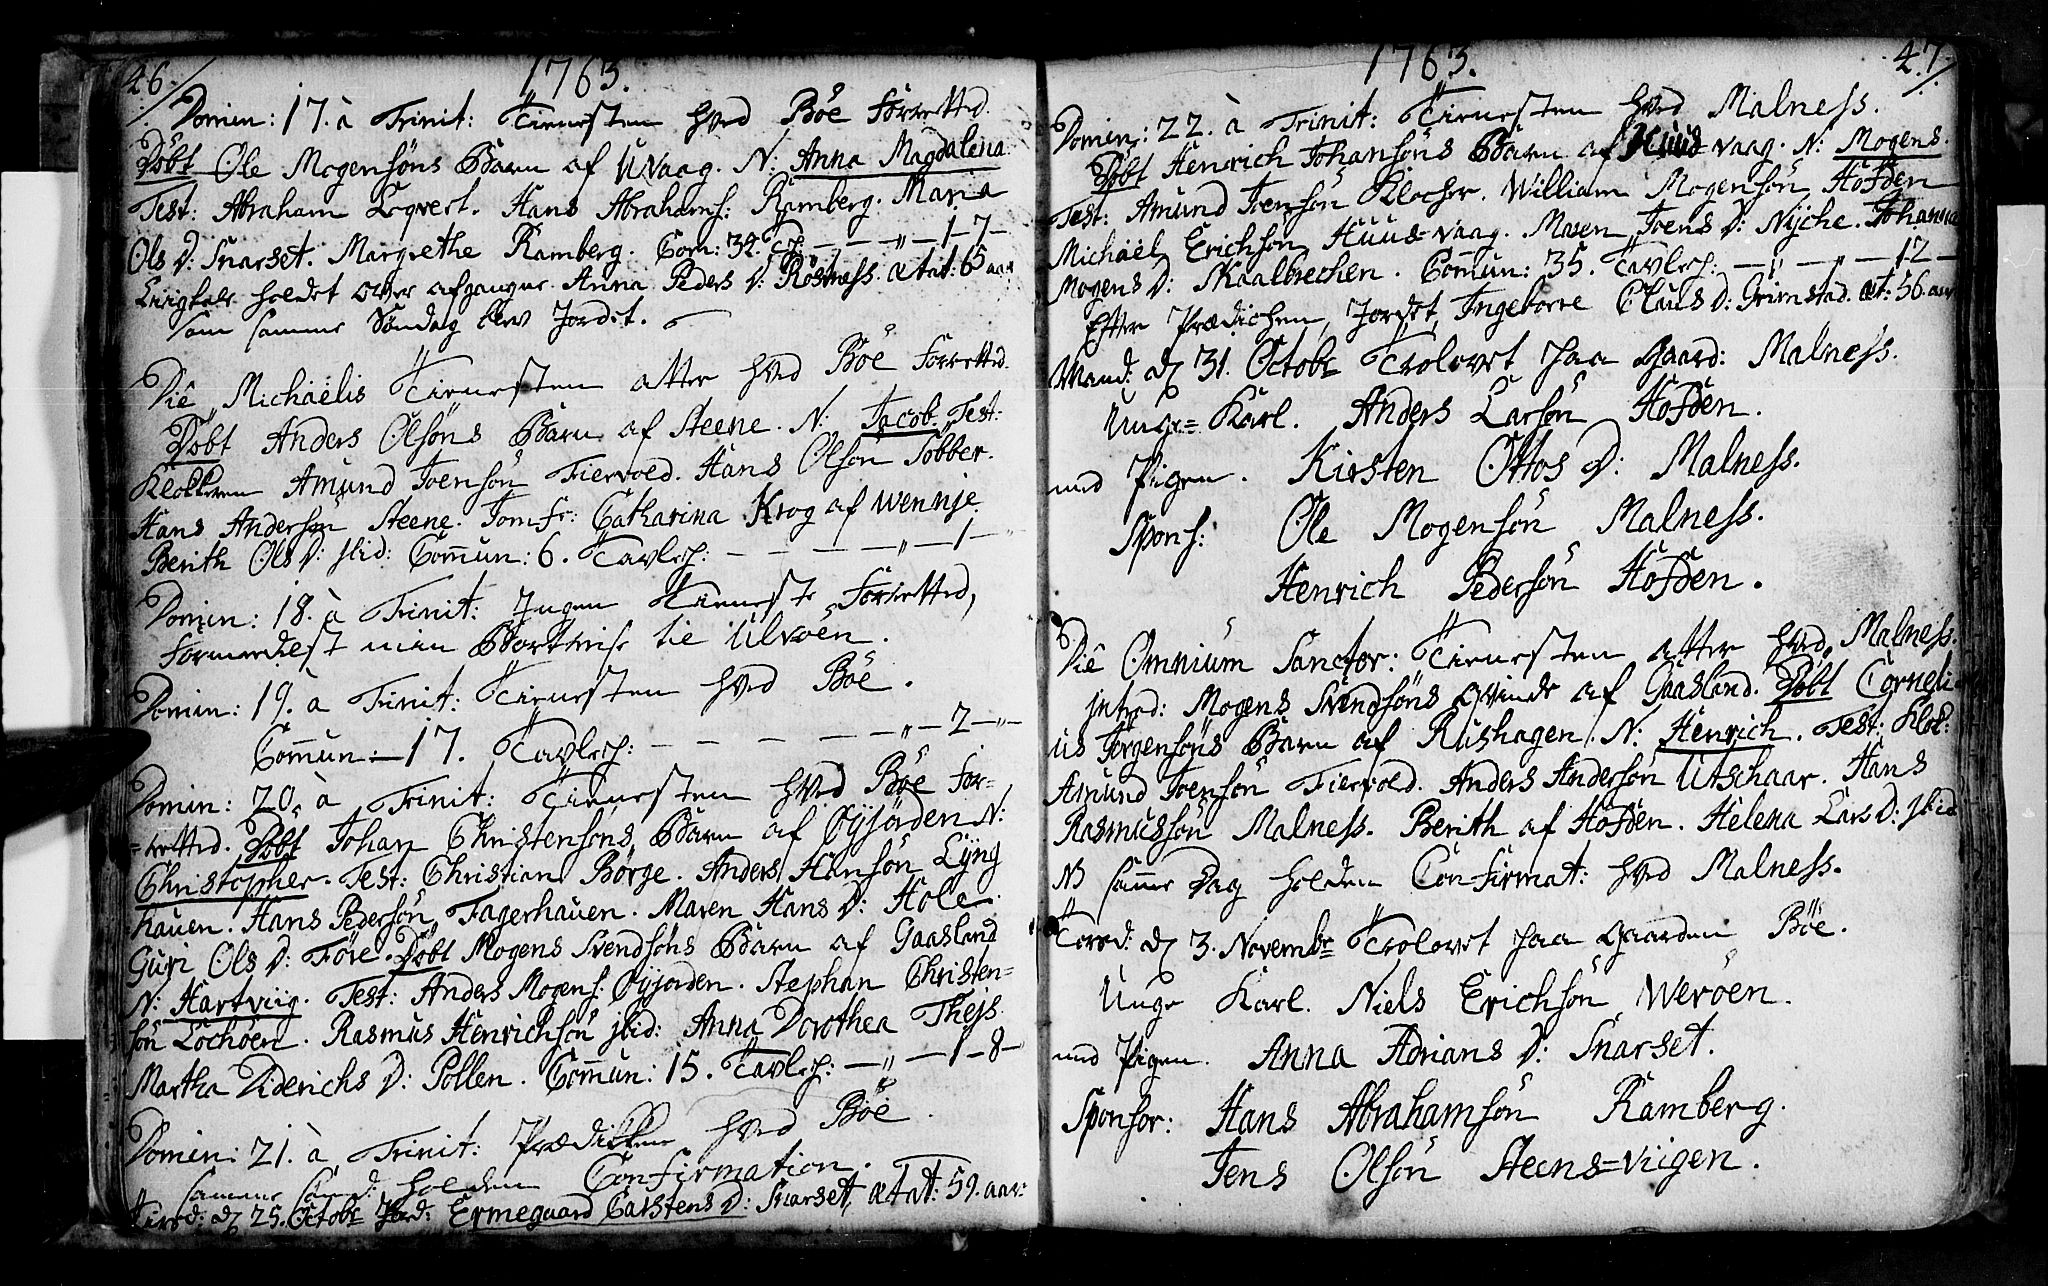 46.
1763.
Domin: 17. à Trinit: Tienesten hved Böe forretted.
Döbt Ole Mogensöns Barn af Uvaag. N: Anna Magdalena.
Test: Abraham Loqvert. Hans Abrahams: Ramberg. Maria
Ols D: Snarset. Margrethe Ramberg. Com: 32. Tch: — — — „ — 1 - 7 -
Liigtale holdet over afgangne Anna Peders D: Röstness. ætat: 65 aar
som samme Söndag blev Jordet.
Die Michaëlis Tienesten atter hved Böe forretted.
Döbt Anders Olsöns Barn af Steene. N: Jacob. Test:
Klokkeren Amund Joensön Fiervold. Hans Olsön Sobber.
Hans Andersön Steene. Jomfr: Catharina Krog af Wennje.
Berith Ols D: ibid: Com̄un: 6. Tavlech: — — — — „ — 1 — „
Domin: 18. à Trinit: Ingen Tieneste forretted,
formedelst min Bortreise til Ulvöen.
Domin: 19. à Trinit: Tienesten hved Böe.
Com̄un: — 17. Tavlech: — — — — — „ — 2 — „ —
Domin: 20. à Trinit: Tienesten hved Böe for-
=retted. Döbt Johan Christensöns Barn af Øyjorden N:
Christopher. Test: Christian Börge. Anders Hansön Lyng
hauen. Hans Pedersön Fagerhauen. Maren Hans D: Hole
Guri Ols D: Före. Döbt Mogens Svendsöns Barn af Gaasland
N: Hartviig. Test: Anders Mogens: Øyjorden. Stephan Christen=
sön Lochöen. Rasmus Henrichsön ibid: Anna Dorothea Thejs
Martha Diderichs D: Pollen. Com̄un: 15. Tavlech: — „ — 1 - 8 -
Domin: 21. à Trinit: Prædikken hved Böe.
samme holden Confirmation.
Tirsd: d 25. Octobr Jord: Ermegaard Carstens D: Snarset, ætat: 59. aar:
1763.
47.
Domin: 22. à Trinit: Tienesten hved Malness.
Döbt Henrich Johansöns Barn af Huus-vaag. N: Mogens.
Test: Amund Joensön Klocher. William Mogensön Höfden
Michaël Erichsön Huus-vaag. Maren Joens D: Nyche. Johanna
Mogens D: Skaalbrechen. Com̄un: 35. Tavlech: — „ — „ — 12 —
Efter Prædichen, Jordet Ingeborre Claus D: Grimstad. æt: 56. aar
Mand: d 31. Octobr Trolovet paa Gaard: Malness.
Unge=Karl. Anders Larsön Höfden.
med Pigen. Kirsten Ottos D: Malness.
Spons: Ole Mogensön Malness.
Henrich Pedersön Höfden.
Die Omnium Sanctor: Tienesten atter hved Malness.
Introd: Mogens Svendsöns Qvinde af Gaasland. Döbt Corneli
us Jörgensöns Barn af Riishagen N: Henrich. Test: Klok:
Amund Joensön Fiervold. Anders Andersön Utschaar. Hans
Rasmussön Malness. Berith af Höfden. Helena Lars D: ibid
NB samme Dag holden Confirmat: hved Malness.
Torsd: d 3. Novembr Trolovet paa Gaarden Böe.
Unge Karl. Niels Erichsön Weröen.
med Pigen. Anna Adrians D: Snarset.
Sponsor: Hans Abrahamsön Ramberg.
Jens Olsön Steens=viigen.